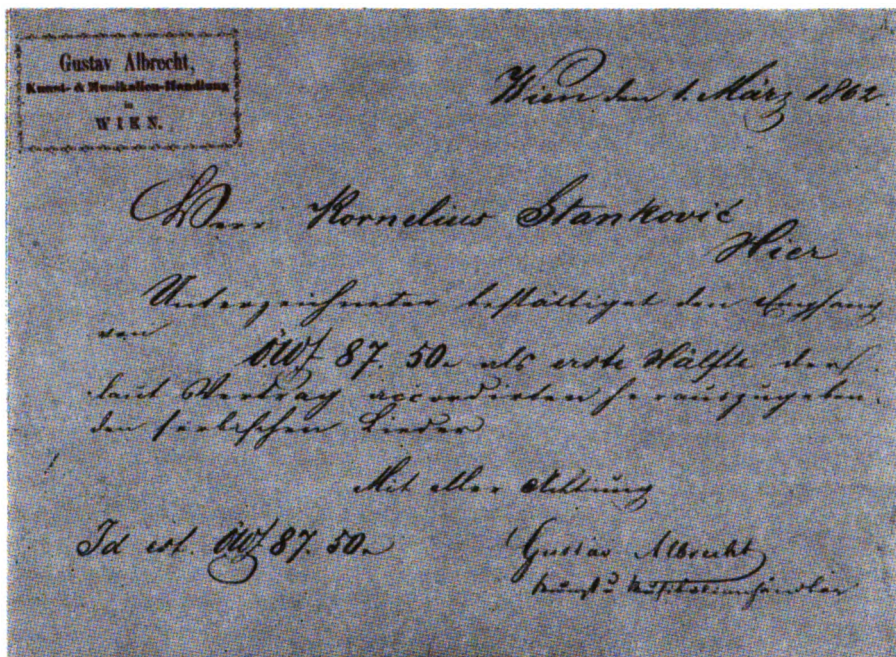 Gustav Albrecht,
Kunst- & Musikalien-Handlung
in
WIEN.
Wien den 1. März 1862
Herr Kornelius Stanković
Hier
Unterzeichneter bestättiget den Empfang
von
öWf 87. 50 als erste Hälfte der
laut Vertrag accordirten herauszugeben-
den serbischen Lieder
Mit aller Achtung
Id est. öWf 87. 50
Gustav Albrecht
Kunst u Musikalienhändler